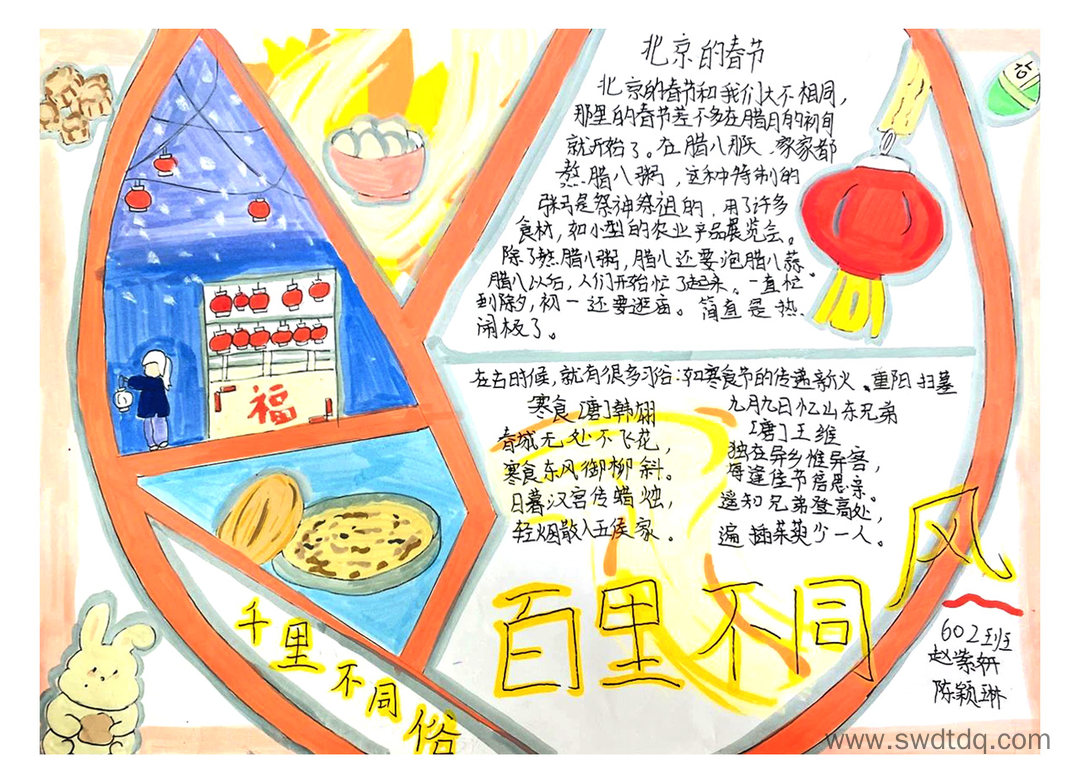 北京的春节
北京的春节和我们大不相同，
那里的春节差不多在腊月的初旬
就开始了。在腊八那天、家家都
熬腊八粥，这种特制的
粥是祭神祭祖的，用了许多
食材，如小型的农业产品展览会。
除了熬腊八粥，腊八还要泡腊八蒜。
腊八以后，人们开始忙了起来。一直忙
到除夕，初一还要逛庙。简直是热
闹极了。
在古时候，就有很多习俗：如寒食节的传递新火、重阳扫墓
寒食[唐]韩翃
春城无处不飞花，
寒食东风御柳斜。
日暮汉宫传蜡烛，
轻烟散入五侯家。
九月九日忆山东兄弟
[唐]王维
独在异乡惟异客，
每逢佳节居思亲。
遥知兄弟登高处，
遍插茱萸少一人。
福
千里不同俗
百里不同风
602班
赵荣妍
陈颖琳
www.swdtdq.com